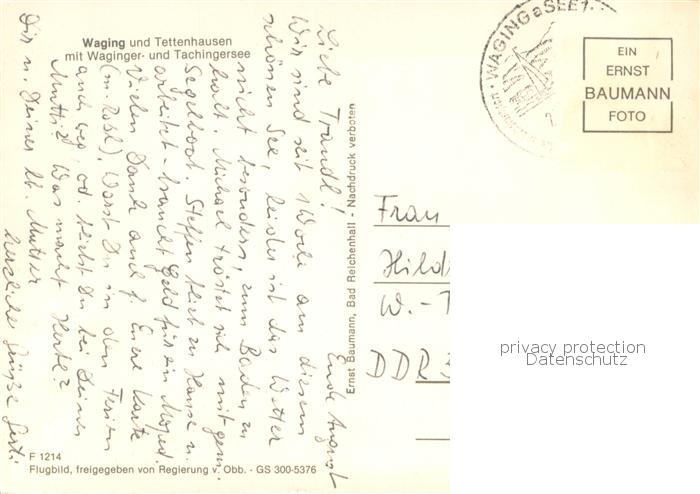 Waging und Tettenhausen
mit Waginger- und Tachingersee
Ende August
Liebe Traudl!
Wir sind seit 1 Woche an diesem
schönen See, leider ist das Wetter
nicht besonders, zum Baden zu
kalt. Michael tröstet sich mit
Segelboot. Steffen blieb zu Hause u.
arbeitet - braucht Geld für ein Moped.
Vielen Dank auch f. Eure Karte
Warst Du in den Ferien
auch weg, od. bleibst Du bei Deiner
Mutti? Was macht Herta?
Dir u. Deiner lb. Mutter
herzliche Grüße
F 1214
Flugbild, freigegeben von Regierung v. Obb. - GS 300-5376
Ernst Baumann, Bad Reichenhall - Nachdruck verboten
WAGING a SEE 1
EIN
ERNST
BAUMANN
FOTO
Frau
Hild
W.-
DDR
privacy protection
Datenschutz